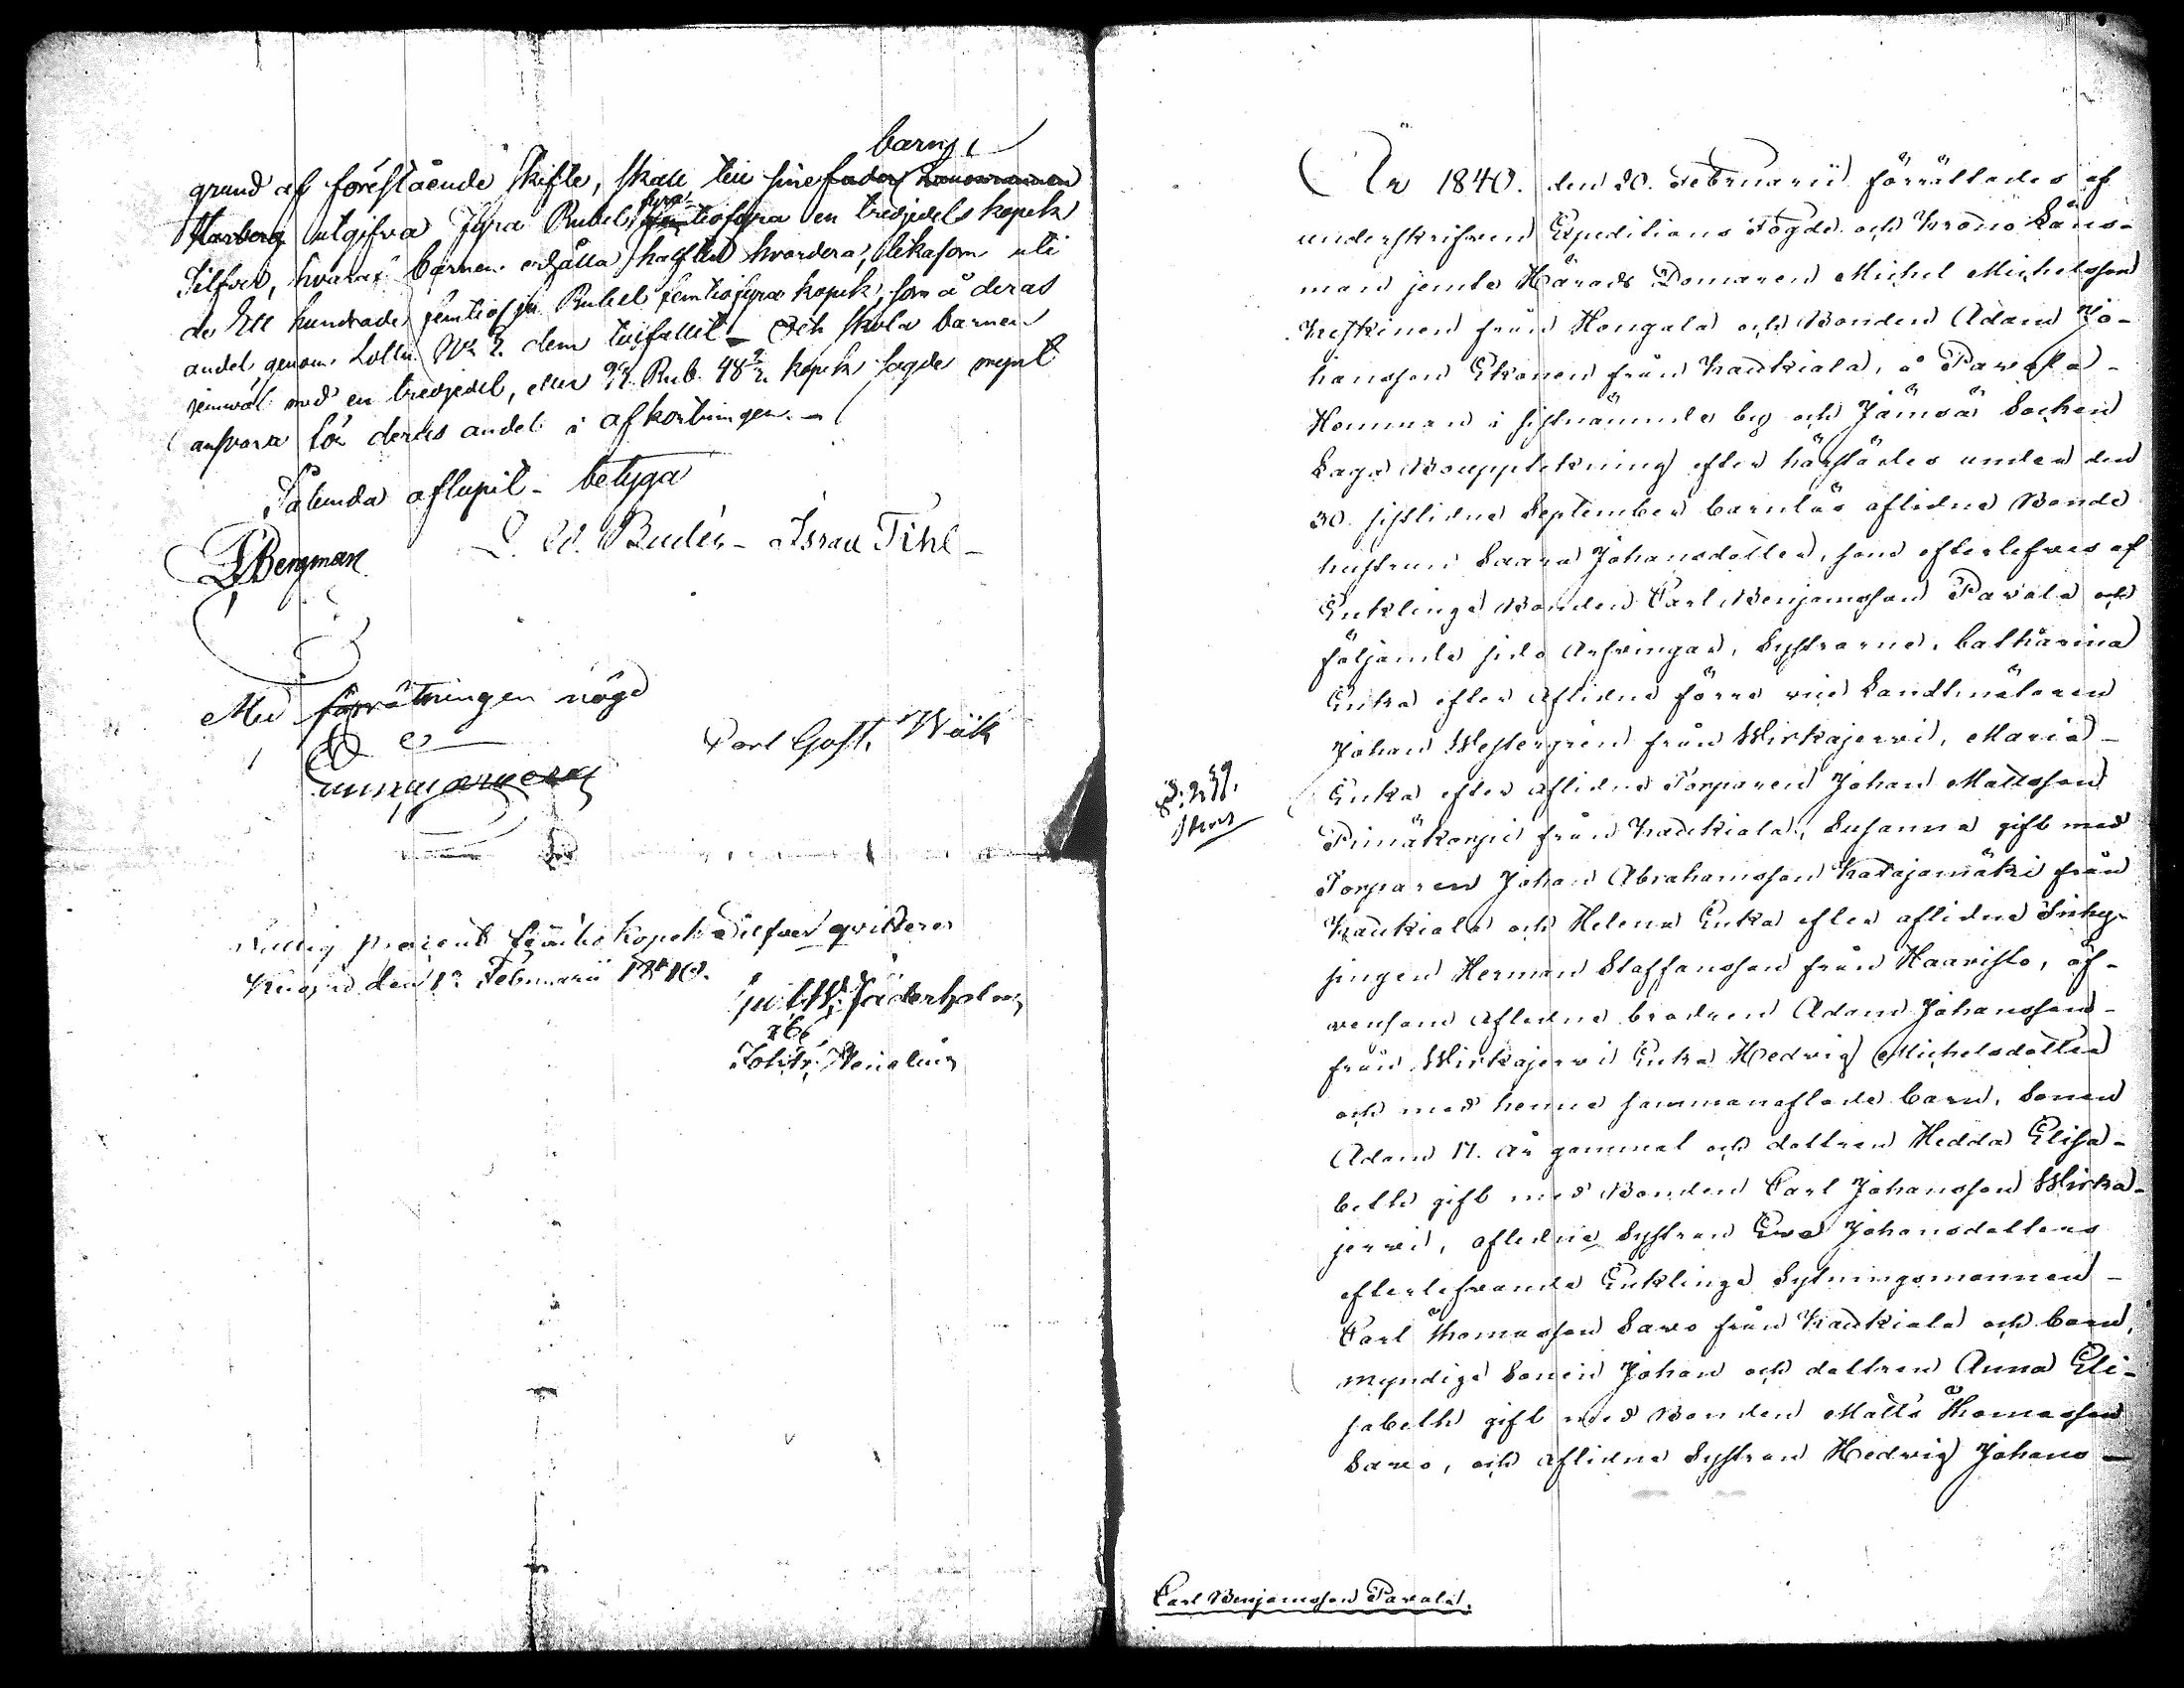 barns
grund af förestående skifte, skall till sine fader
Harberg utgifva fyra Rubel fyratiofyra en tredjedels kopek
Silfver, hvaraf barnen erhålla hälften hvardera, likasom uti
de Ett hundrade femtiosju Rubel femtiofyra kopek, som å deras
andel, genom Lotten N:o 2. dem tillfallit - Och skola barnen
jemväl med en tredjedel, eller Rub. 48 2/3 kopek sagde mynt
ansvara för deras andel i afkortningen. -
Sålunda aflupit - betyga
Bergman L. W. Budén - Israel Tihl -
Med förrättningen nöjd
Carl Gust. Wäk
procent femtio kopek Silfver qvitteras
den 1 Februarii 1840.
År 1840. den 20. Februarii förrättades af
underskrifven Expeditions Fogde och Krono Läns-
man jemte Härads Domaren Michel Michelsson
Keskinen från Hongola och Bonden Adam Jo-
hansson Ekonen från Haukiala, å Pavala -
Hemman i sistnämnde by och Jämsä Socken
Laga Bouppteckning efter härstädes under den
30. sistlidne September barnlös aflidne Bonde
hustrun Saara Johansdotter, som efterlefves af
Enklinge Bonden Carl Benjamsson Pavala och
följande sido Arfvingar, Systrarne, Catharina
Enka efter aflidne förre vice Landtmätaren
Johan Westergrén från Wirkajervi, Maria -
D: 239.
Enka efter aflidne Torparen Johan Mattsson
Pimäkorpi från Haukiala, Susanna gift med
Torparen Johan Abrahamsson Katajamäki från
Haukiala och Helena Enka efter aflidne Inhy-
singen Herman Staffansson från Haavisto, äf-
vensom aflidne brodren Adam Johansson -
från Wirkajervi Enka Hedvig Michelsdotter
och med henne sammanaflade barn, Sonen
Adam 17. år gammal och dottren Hedda Elisa-
beth gift med Bonden Carl Johansson Wirka-
jervi, aflidne Systren Eva Johansdotters
efterlefvande Enklinge Sytningsmannen -
Carl Thomasson Savo från Haukiala och barn,
myndige Sonen Johan och dottren Anna Eli-
sabeth gift med Bonden Matts Thomasson
Savo, och aflidne Systren Hedvig Johans -
Carl Benjamsson Pavala.